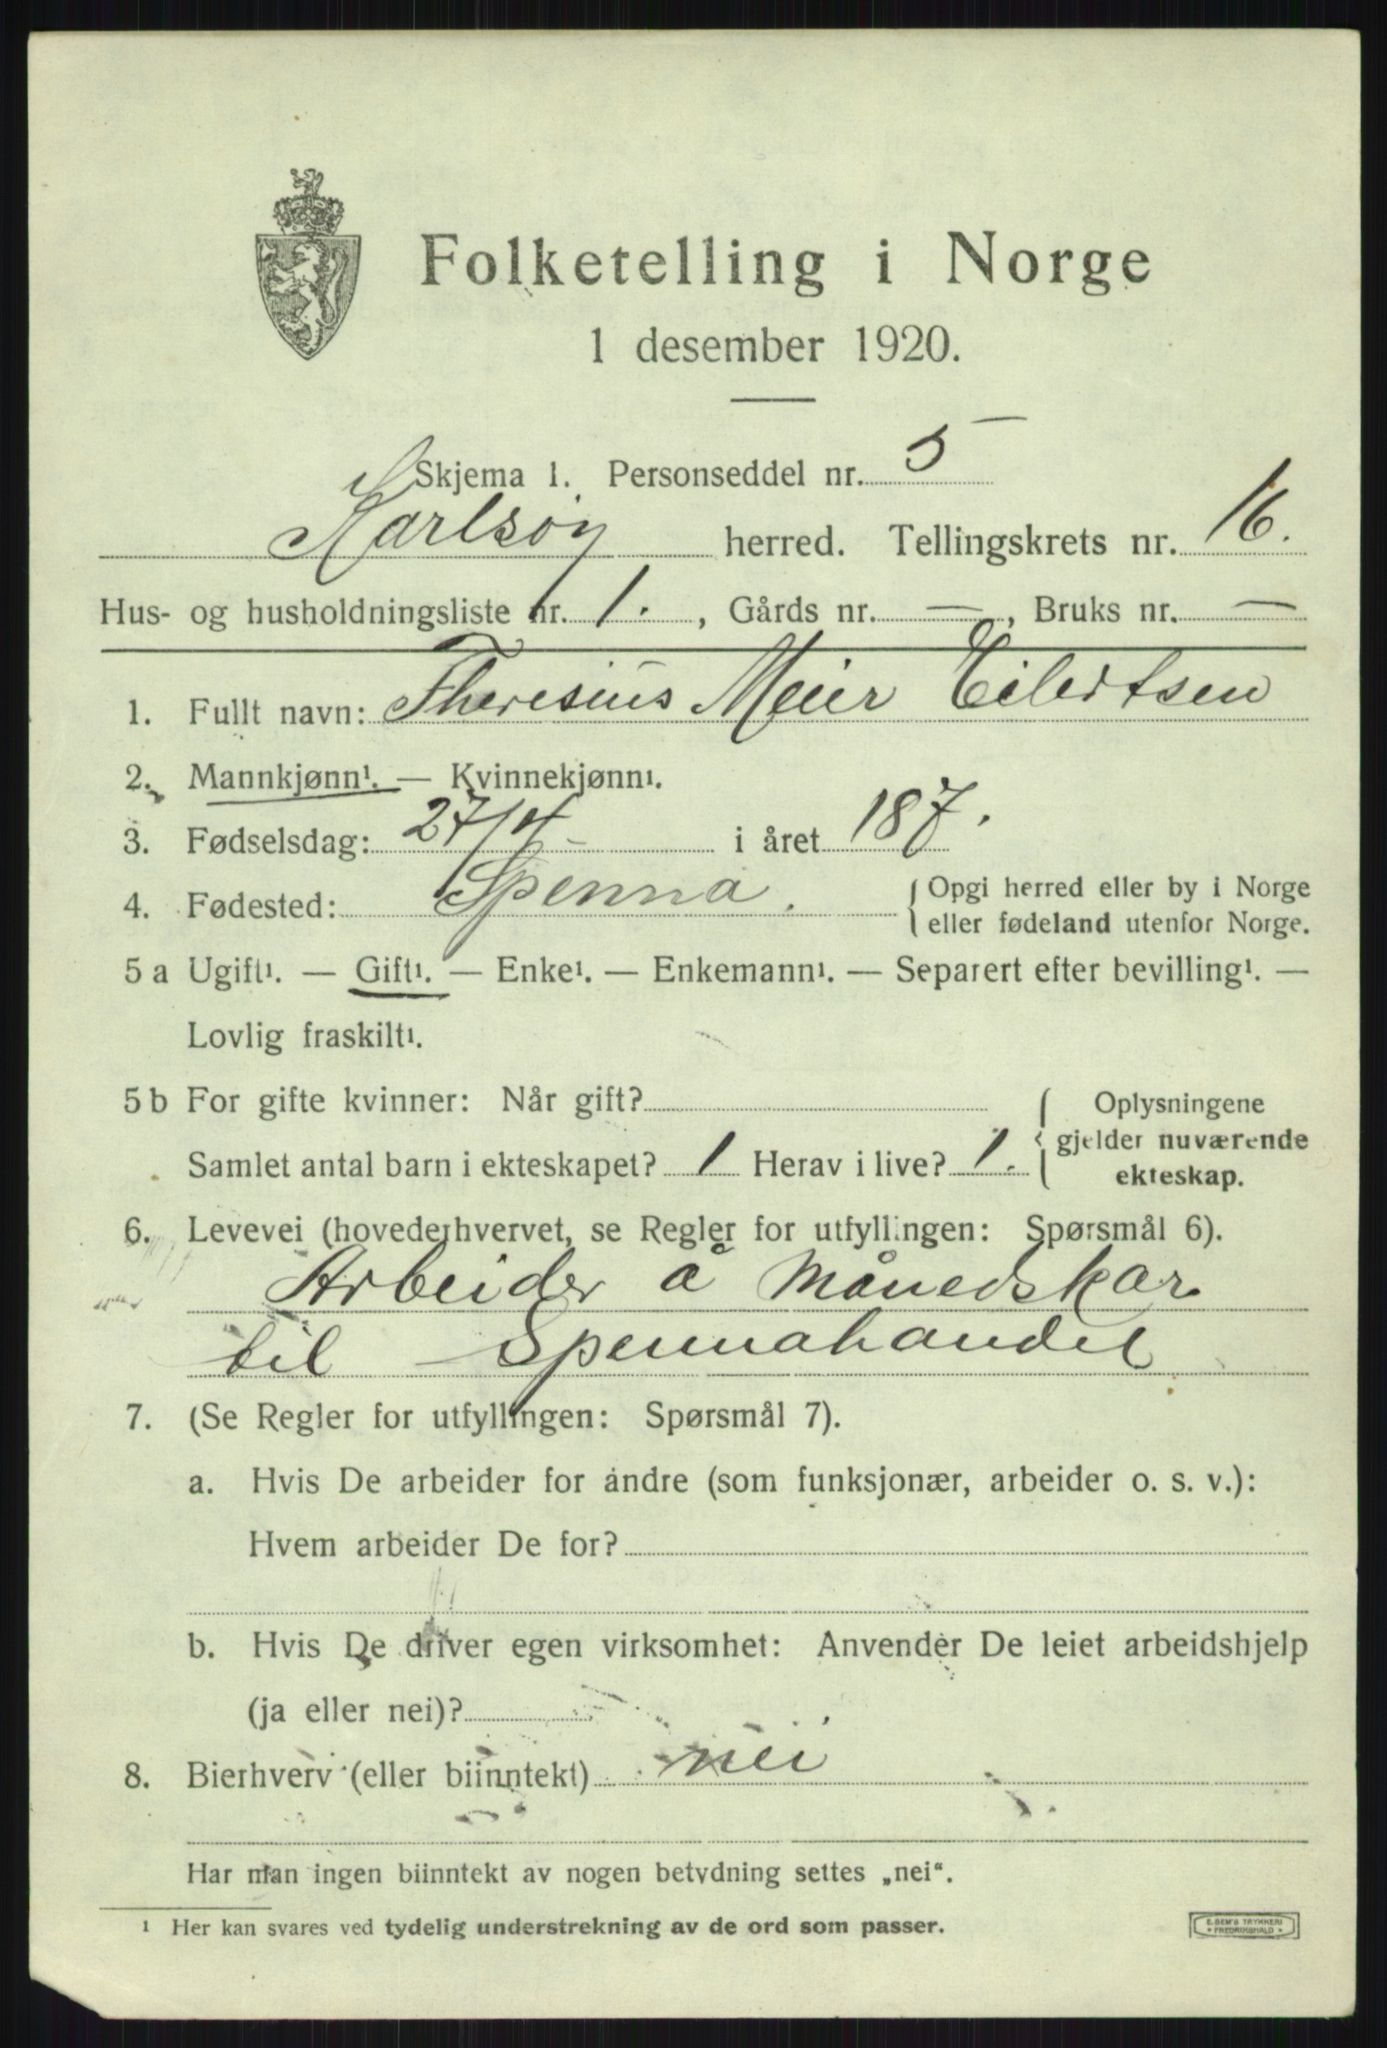 Folketelling i Norge
1 desember 1920.
Skjema 1. Personseddel nr. 5
Karlsöy herred. Tellingskrets nr. 16.
Hus- og husholdningsliste nr. 1. , Gårds nr. — , Bruks nr. —
1. Fullt navn: Theresius Meier Eilertsen
2. Mannkjønn¹. — Kvinnekjønn¹.
3. Fødselsdag: 27/4 i året 187.
4. Fødested: Spenna. { Opgi herred eller by i Norge
eller fødeland utenfor Norge.
5 a Ugift¹. — Gift¹. — Enke¹. — Enkemann¹. — Separert efter bevilling¹. —
Lovlig fraskilt¹.
5 b For gifte kvinner: Når gift? { Oplysningene
Samlet antal barn i ekteskapet? 1 Herav i live? 1. gjelder nuværende
ekteskap.
6. Levevei (hovederhvervet, se Regler for utfyllingen: Spørsmål 6).
Arbeider å Månedskar
til Spennahandel
7. (Se Regler for utfyllingen: Spørsmål 7).
a. Hvis De arbeider for andre (som funksjonær, arbeider o. s. v.):
Hvem arbeider De for?
b. Hvis De driver egen virksomhet: Anvender De leiet arbeidshjelp
(ja eller nei)?
8. Bierhverv (eller biinntekt) nei
Har man ingen biinntekt av nogen betydning settes „nei“.
¹ Her kan svares ved tydelig understrekning av de ord som passer.
E. SEM'S TRYKKERI
FREDRIKSHALD